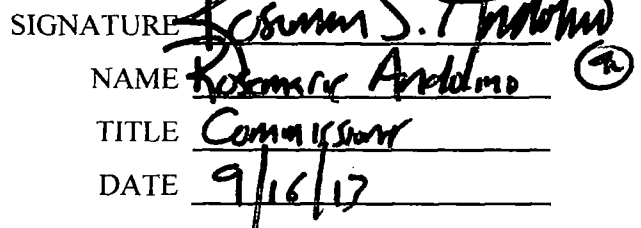 SIGNATURE Rosemarie S. Andolino
NAME Rosemarie Andolino
TITLE Commissioner
DATE 9/16/13